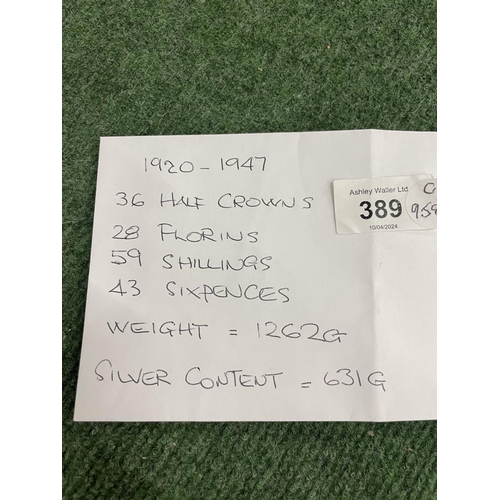 1920-1947
36 HALF CROWNS
28 FLORINS
59 SHILLINGS
43 SIXPENCES
WEIGHT = 1262G
SILVER CONTENT = 631G
Ashley Waller Ltd
389
10/04/2024